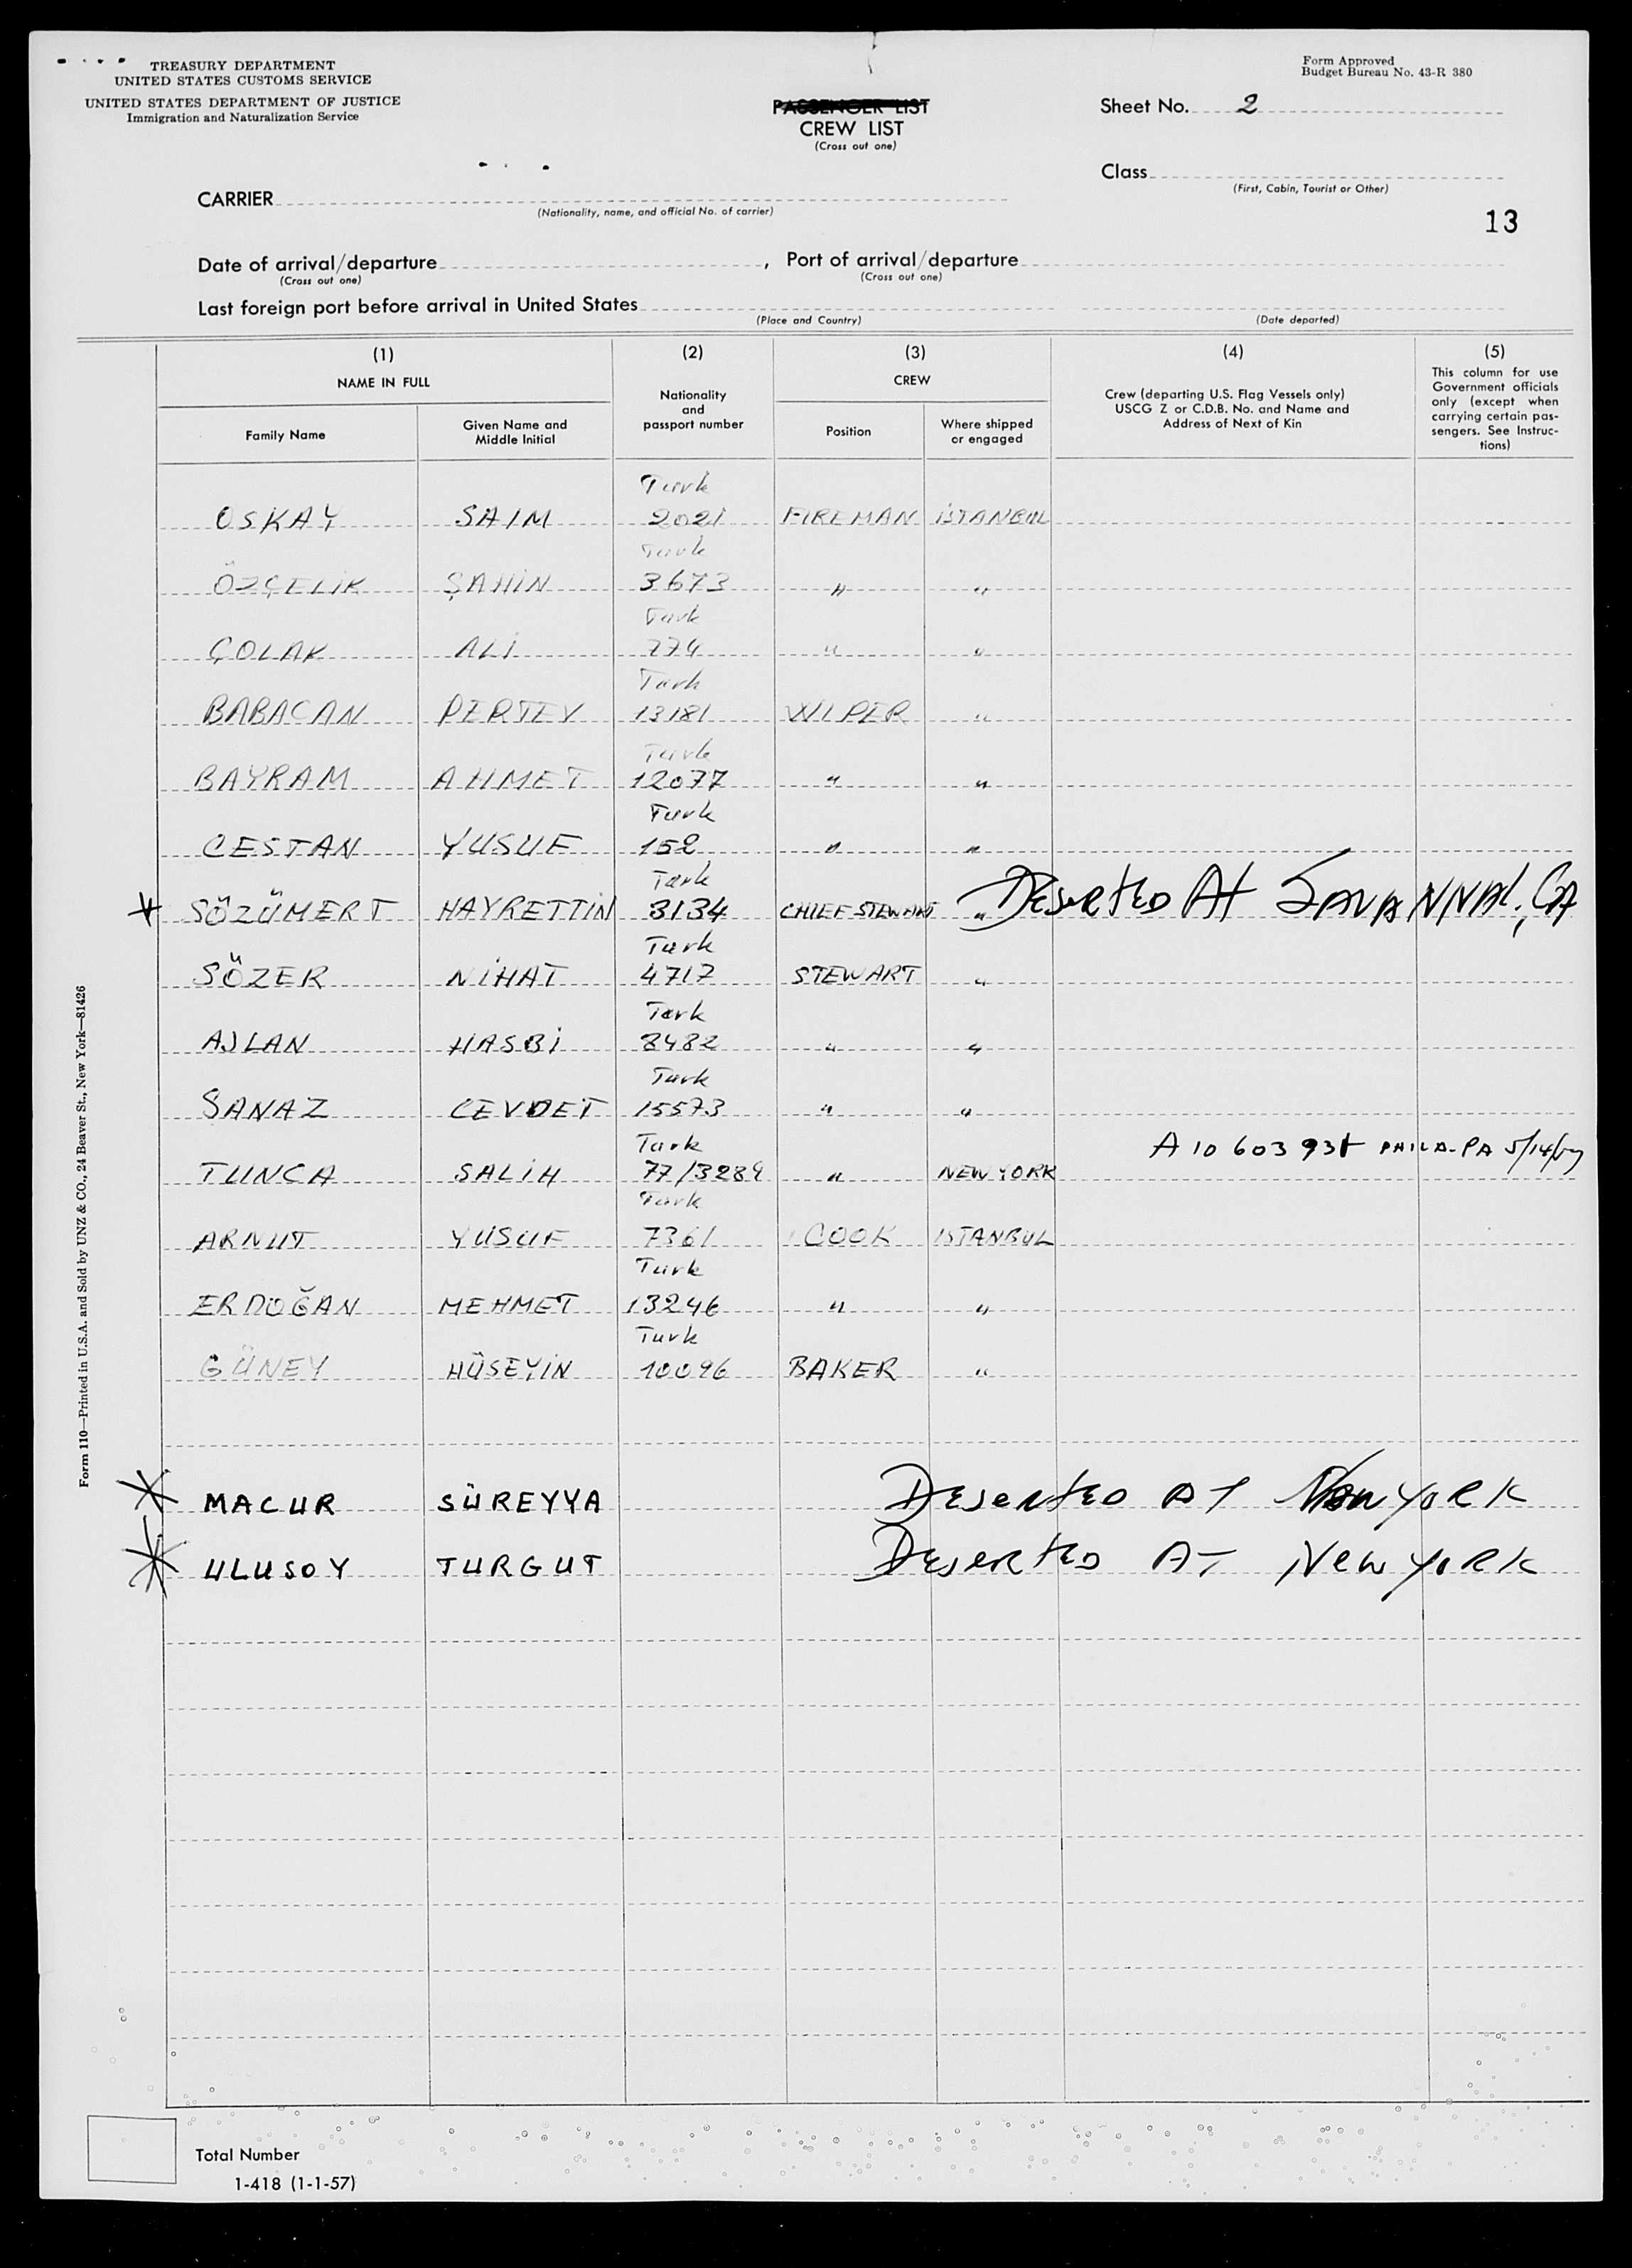 TREASURY DEPARTMENT
UNITED STATES CUSTOMS SERVICE
UNITED STATES DEPARTMENT OF JUSTICE
Immigration and Naturalization Service
PASSENGER LIST
CREW LIST
(Cross out one)
Form Approved
Budget Bureau No. 43-R 380
Sheet No. 2
Class
(First, Cabin, Tourist or Other)
13
CARRIER
(Nationality, name, and official No. of carrier)
Date of arrival/departure , Port of arrival/departure
(Cross out one) (Cross out one)
Last foreign port before arrival in United States
(Place and Country) (Date departed)
(1) (2) (3) (4) (5)
NAME IN FULL
Family Name
Given Name and
Middle Initial
Nationality
and
passport number
CREW
Position
Where shipped
or engaged
Crew (departing U.S. Flag Vessels only)
USCG Z or C.D.B. No. and Name and
Address of Next of Kin
This column for use
Government officials
only (except when
carrying certain pas-
sengers. See Instruc-
tions)
Turk
OSKAY SAIM 2021 FIREMAN İSTANBUL
Turk
ÖZÇELİK ŞAHİN 3673 " "
Turk
ÇOLAK ALİ 774 " "
Turk
BABACAN PERTEV 13181 WIPER "
Turk
BAYRAM AHMET 12077 " "
Turk
CESTAN YUSUF 152 " "
Turk
* SÖZÜMERT HAYRETTİN 3134 CHIEF STEWART " Deserted At SAVANNAH, GA
Turk
SÖZER NİHAT 4717 STEWART "
Turk
ASLAN HASBİ 8482 " "
Turk
SANAZ CEVDET 15573 " "
Turk A 10 603 PHILA-PA
TUNCA SALİH " NEW YORK
Turk
ARNUT YUSUF 7361 COOK ISTANBUL
Turk
ERDOĞAN MEHMET 13246 " "
Turk
GÜNEY HÜSEYİN 10096 BAKER "
* MACUR SÜREYYA Deserted AT New YORK
* ULUSOY TURGUT Deserted AT New YORK
Total Number
1-418 (1-1-57)
Form 110—Printed in U.S.A. and Sold by UNZ & CO., 24 Beaver St., New York—81426